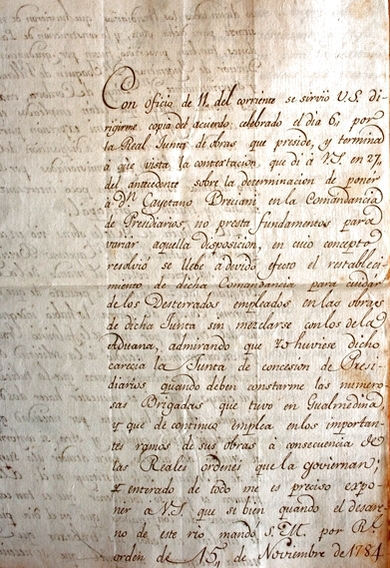 Con oficio de 11 del corriente se sirvió V.S. di-
rigirme copia del acuerdo celebrado el dia 6, por
la Real Junta de obras que preside, y termina
á que vista la contextacion, que di à V.S. en 27,
del antecedente sobre la determinacion de poner
à Dn. Cayetano en la Comandancia
de Presidiarios, no presta fundamentos para
variar aquella disposicion, en cuio concepto
resolvió se llebe à devido efecto el restableci-
miento de dicha Comandancia para cuidar
de los Desterrados empleados en las obras
de dicha Junta sin mezclarse con los de la
Aduana, admirando que Yo huviese dicho
carecia la Junta de concesion de Presi-
diarios, quando deben constarme las numero-
sas Brigadas que tuvo en Gualmedina
y que de continuo emplea en los importan-
tes ramos de sus obras à consecuencia de
las Reales ordenes que la goviernan;
Y enterado de todo me es preciso expo-
ner à V.S. que si bien quando el descare-
no de este rio mandó S.M. por Rl.
orden de 15, de Noviembre de 1784